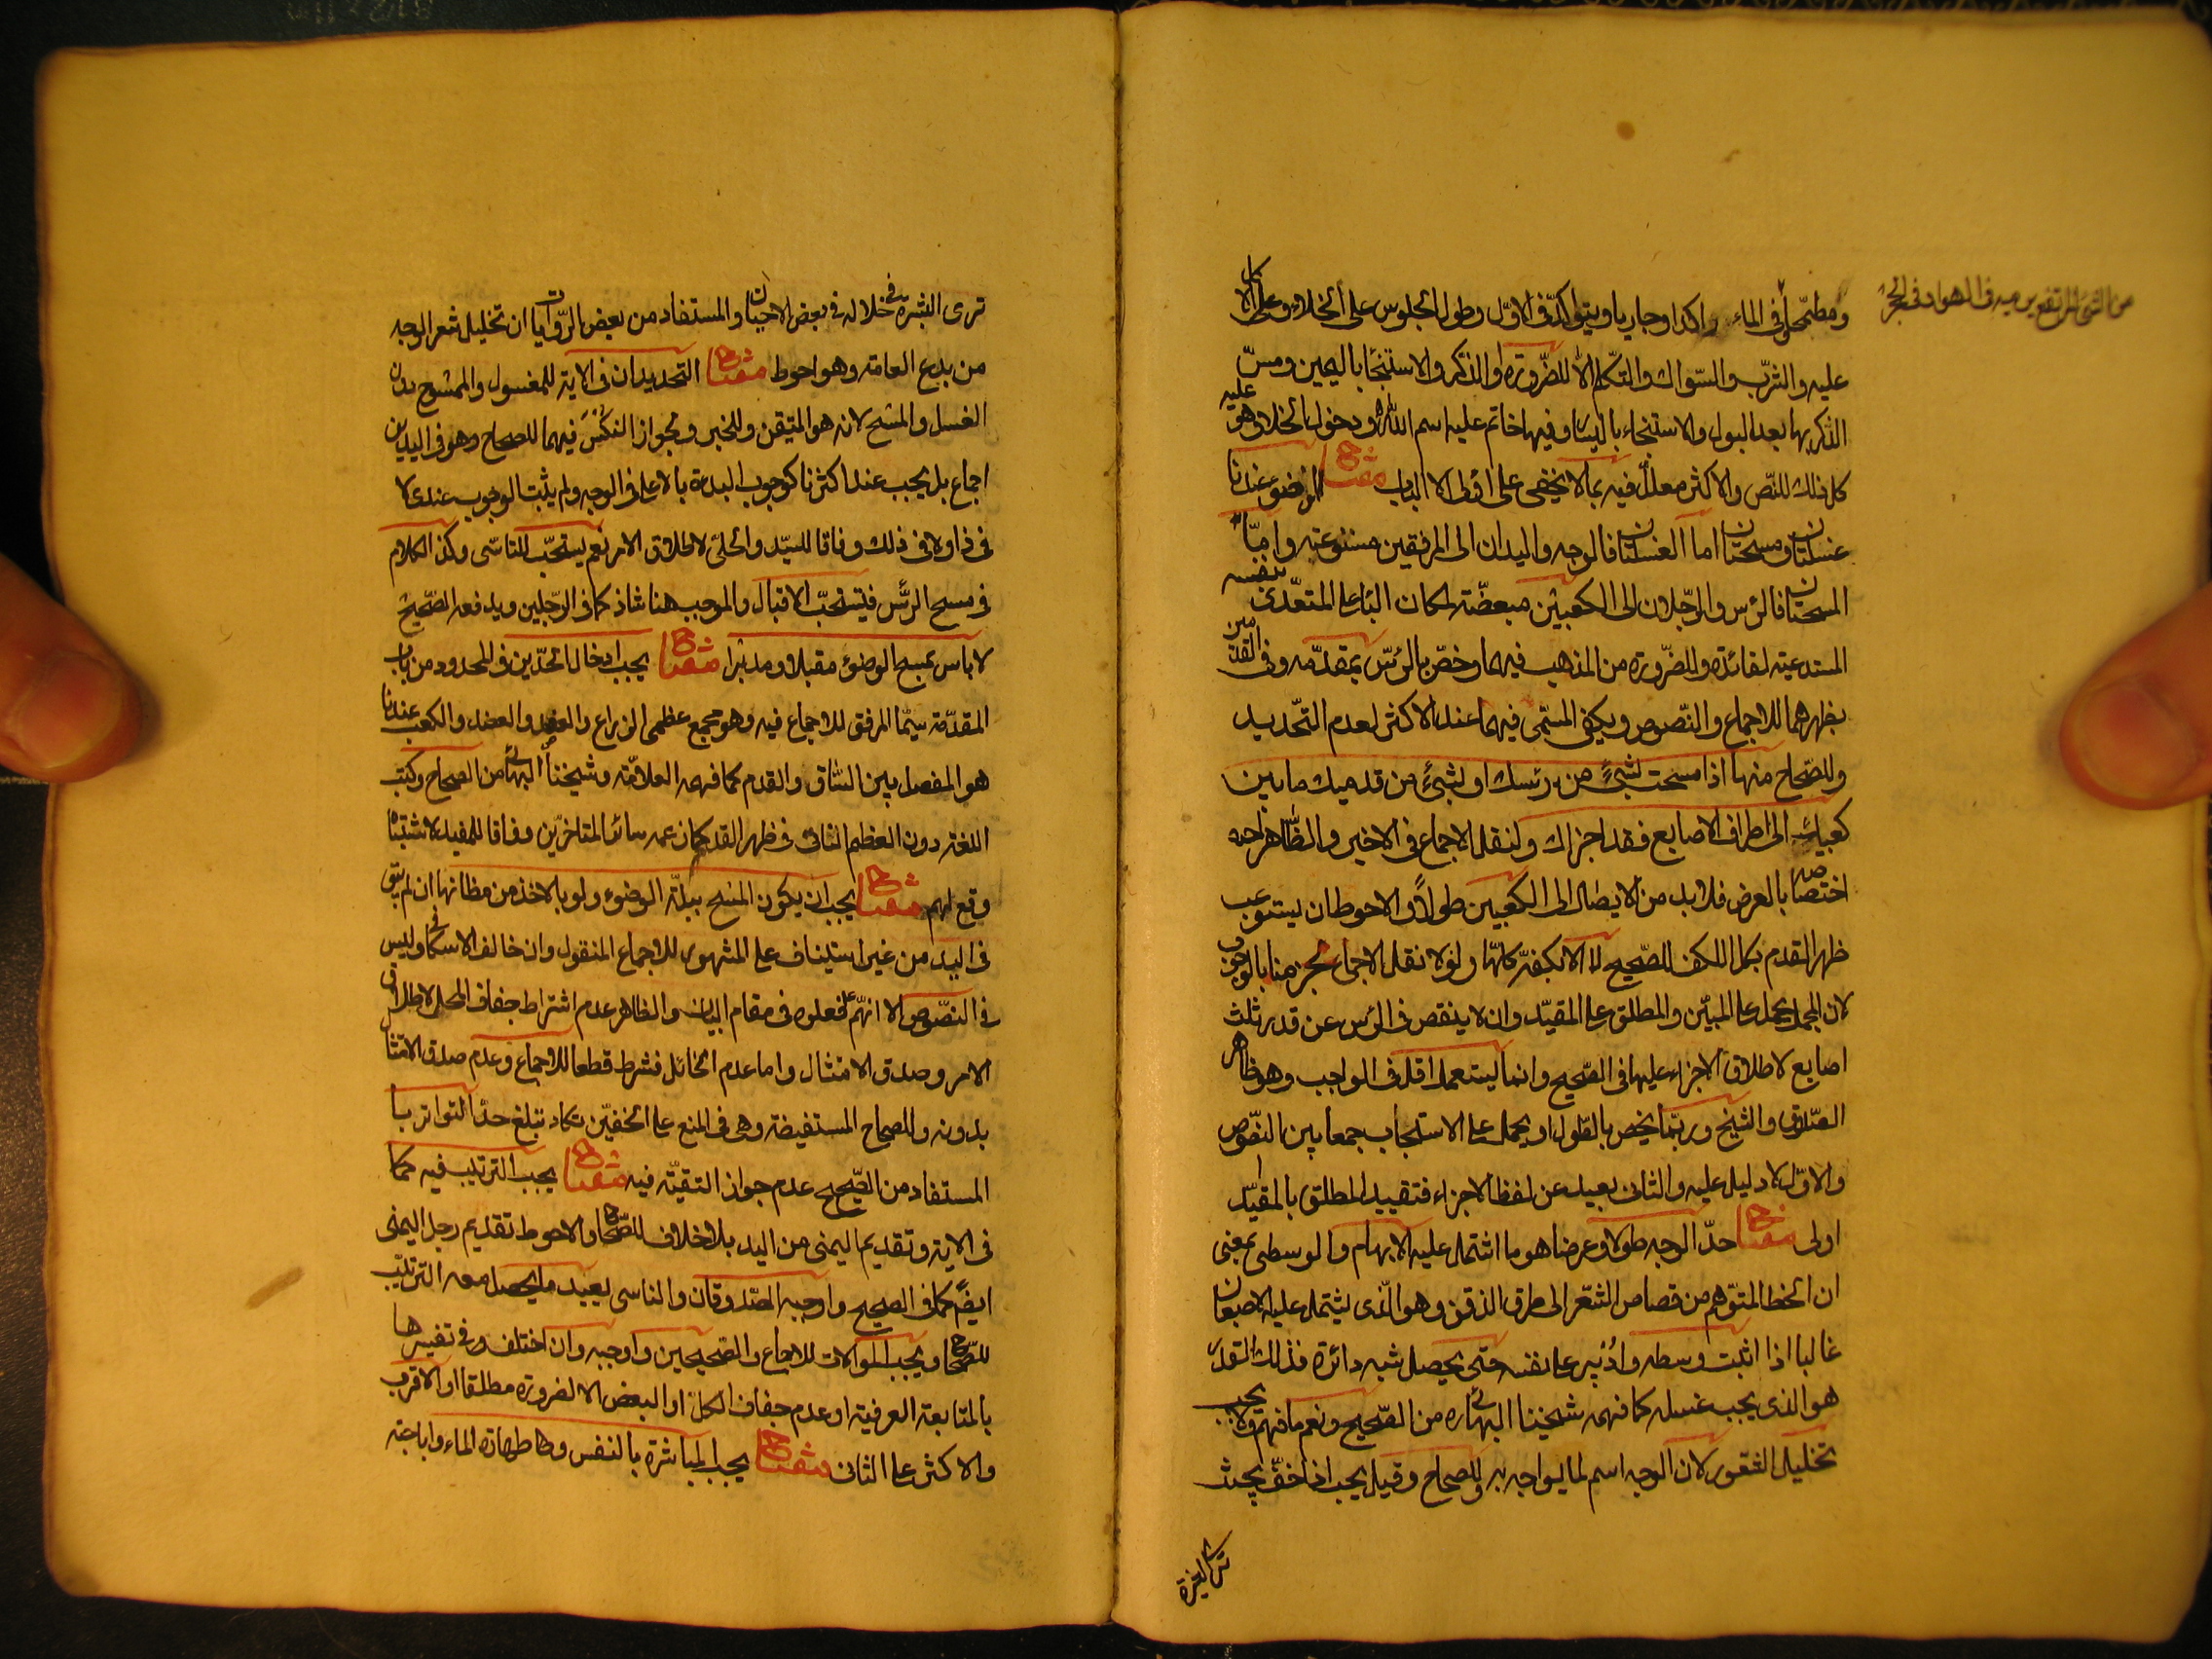 من الشئ المرتفع يرميه فى الهواء وفى الحجر
ومطمحا فى الماء راكدا وجاريا ويتواكد فى الاوّل وطول الجلوس على الخلاء وعلى الاكل
عليه والشرب والسّواك والتكلم الا للضّرورة والذكر والاستنجا باليمين ومسّ
الذكر بها بعد البول والاستنجاء باليسار وفيها خاتم عليه اسم الله ودخول الخلا وهو عليه
كل ذلك للنّص والاكثر معلل فيه بما لا يخفى على اولى الالباب مفتاح الوضوء عندنا
غسلتان ومسحتان اما الغسلتان فالوجه واليدان الى المرفقين مستوعبة واما
المسحتان فالرئس والرّجلان الى الكعبين مبعضّة لمكان الباء على المتعدّى بنفسه
المستدعية لفائدة وللضّرورة من المذهب فيهما وخصّ بالرئس بمقدّمه وفى القدمين
بظهرهما للاجماع والنّصوص ويكفى المسّمى فيهما عند الاكثر لعدم التّحديد
وللصّحاح منها اذا مسحت بشئٍ من رئسك او بشئٍ من قدميك ما بين
كعبيك الى اطراف الاصابع فقد اجزاك ولنقل الاجماع فى الاخير والظّاهر انه
اختصاصه بالعرض فلا بد من الايصال الى الكعبين طولاً والاحوط ان يستوعب
ظهر القدم بكل الكف للصّحيح لا الا بكفّه كلّها ولولا نقل الاجماع لجزمنا بالوجوب
لان المجمل يحمل على المبيّن والمطلق على المقيّد وان لا ينقص فى الرئس عن قدر ثلث
اصابع لاطلاق الاجزاء عليها فى الصّحيح وانما يستعمل اقل فى الواجب وهو ظاهر
الصّدوق والشيخ وربّما يخص بالطّول او يحمل على الاستحباب جمعا بين النصّوص
والاوّل لا دليل عليه والثانى بعيد عن لفظ الاجزاء فتقييد المطلق بالمقيّد
اولى مفتاح حدّ الوجه طولا وعرضا هو ما اشتمل عليه الابهام والوسطى بمعنى
ان الخط المتوّهم من قصاص الشّعر الى طرف الذقن وهو الّذى يشتمل عليه الاصبعان
غالبا اذا اثبت وسطه وادُير على نفسه حتى يحصل شبه دائرة فذلك القدر
هو الذى يجب غسله كما فهمه شيخنا البهائى ره من الصّحيح ونعم ما فهم ولا يجب
تخليل الشعور لان الوجه اسم لما يواجه به وللصحاح وقيل يجب اذا خفّ بحيث
ترى البشرة
ترى البشرة فى خلاله فى بعض الاحيان والمستفاد من بعض الرّوايات ان تخليل شعر الوجه
من بدع العامة وهو احوط مفتاح التحديدان فى الاية للمغسول والممسوح دون
الغسل والمسح لانه هو المتيقن وللخبر ولجواز النكس فيهما للصحاح وهو فى اليدين
اجماع بل يجب عند اكثرنا كوجوب البدءة بالاعلى فى الوجه ولم يثبت الوجوب عندى لا
فى ذا ولا فى ذلك وفاقا للسيّد والحلّى لاطلاق الامر نعم يستحّب للتاسّى وكذا الكلام
فى مسح الرئّس فيتسحبّ الاقبال والموجب هنا شاذ كما فى الرّجلين ويدفعه الصّحيح
لا باس بمسح الوضوء مقبلا ومدبرا مفتاح يجب ادخال الحدّين فى المحدود من باب
المقدّمة سيّما المرفق للاجماع فيه وهو مجمع عظمى الزراع والعضد والكعب عندنا
هو المفصل بين السّاق والقدم كما فهمه العلامّة وشيخنا البهائى من الصحاح وكتب
اللغة دون العظم الناتى فى ظهر القدم كما زعمه سائر المتاخرّين وفاقا للمفيد لاشتباه
وقع لهم مفتاح يجب ان يكون المسح ببلّة الوضوء ولو بالاخذ من مظانها ان لم يبق
فى اليد من غير استيناف على المشهور للاجماع المنقول وان خالف الاسكافى وليس
فى النصّوص الا انهّم ع فعلوه فى مقام البيان والظاهر عدم اشتراط جفاف المحل لاطلاق
الامر وصدق الامتثال واما عدم الحائل فشرط قطعا للاجماع وعدم صدق الامتثال
بدونه وللصحاح المستفيضة وهى فى المنع على الخفيّن تكاد تبلغ حدّ التواتر بل
المستفاد من الصّحيح عدم جواز التقيّة فيه مفتاح يجب الترتيب فيه كما
فى الاية وتقديم اليمنى من اليد بلا خلاف للصّحاح والاحوط تقديم رجل اليمنى
ايضًا كما فى الصحيح واوجبه الصّدوقان والناسى يعيد ما يحصل معه الترتيب
للصّحاح ويجب الموالات للاجماع والصّحيحين واوجبه وان اختلف فى تفسيرها
بالمتابعة العرفية او عدم جفاف الكلّ او البعض الا لضرورة مطلقا او الاقرب
والاكثر على الثانى مفتاح يجب المباشرة بالنفس وطهارة الماء واباحته